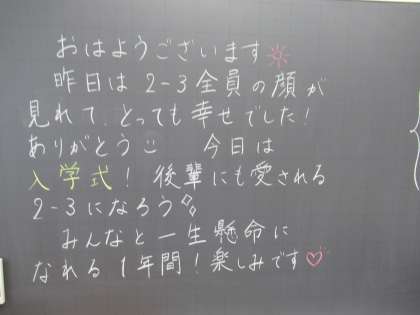 おはようございます☼
昨日は2-3全員の顔が
見れて、とっても幸せでした!
ありがとう☺ 今日は
入学式! 後輩にも愛される
2-3になろう
みんなと一生懸命に
なれる1年間!楽しみです♡